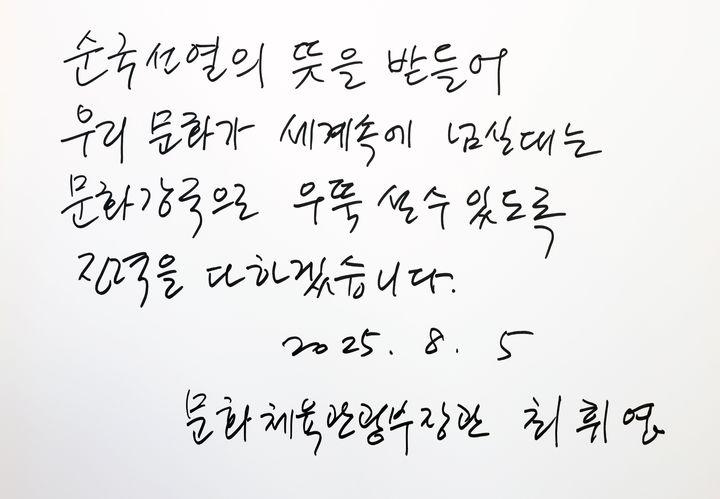 순국선열의 뜻을 받들어
우리 문화가 세계속에 넘실대는
문화강국으로 우뚝 설수있도록
진력을 다하겠습니다.
2025. 8. 5
문화체육관광부장관 최휘영